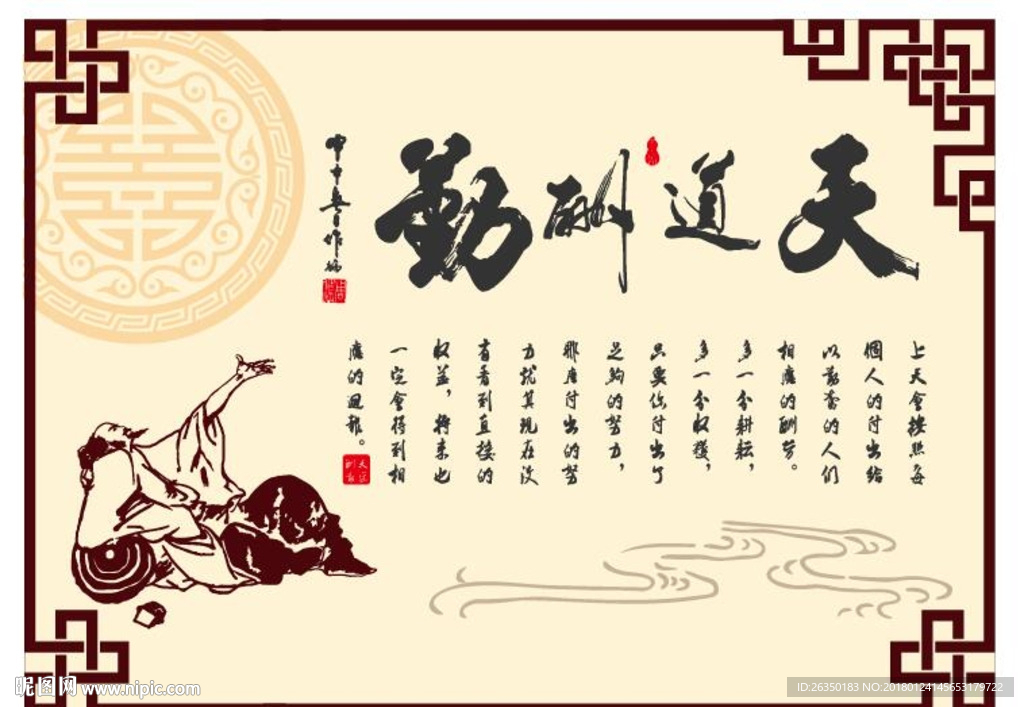 天道酬勤
上天會按照每
個人的付出給
以勤奮的人们
相應的酬劳。
多一分耕耘，
多一分收穫，
只要你付出了
足夠的努力，
那麼付出的努
力就算現在没
有看到直接的
收益，将来也
一定會得到相
應的迴報。
昵图网 www.nipic.com
ID:26350183 NO:20180124145653179722